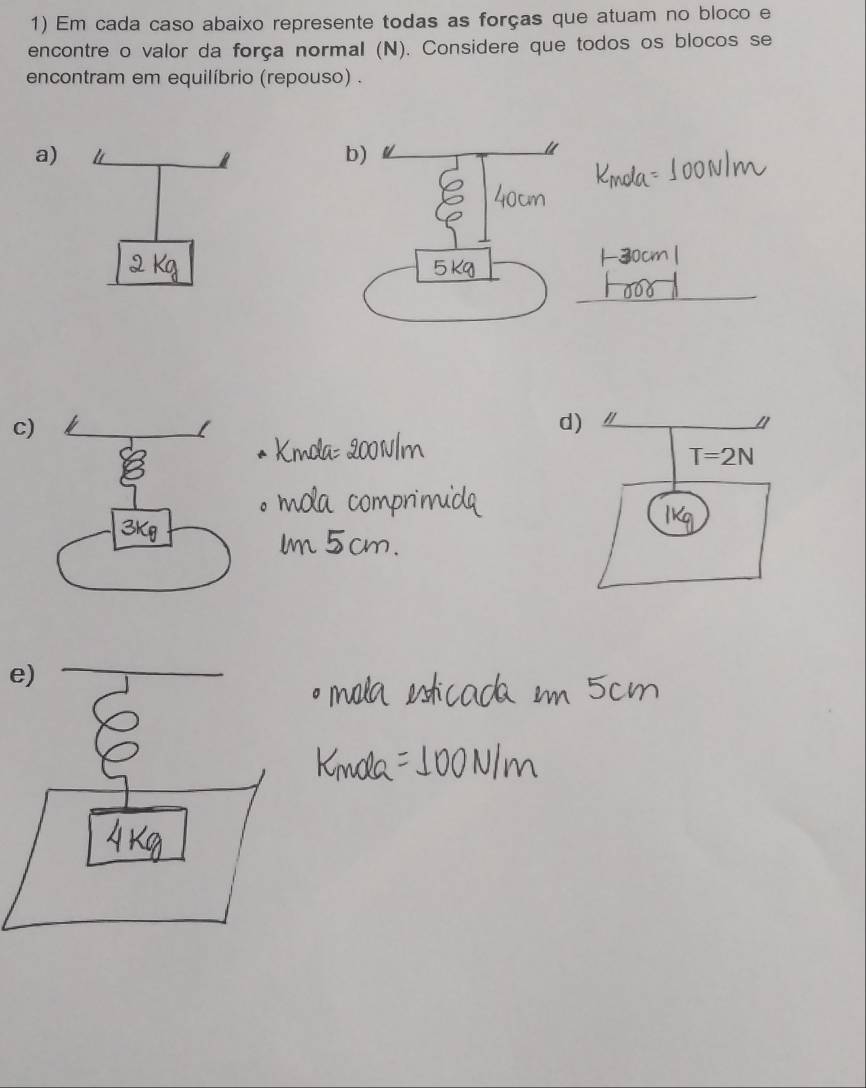 1) Em cada caso abaixo represente todas as forças que atuam no bloco e
encontre o valor da força normal (N). Considere que todos os blocos se
encontram em equilíbrio (repouso) .
a)
2 Kg
b)
40cm
5Kg
Kmola = 100N/m
30cm
c)
3Kg
• Kmola = 200N/m
• mola comprimida
em 5 cm.
d)
T=2N
1Kg
e)
4Kg
• mola esticada em 5cm
Kmola = 100N/m